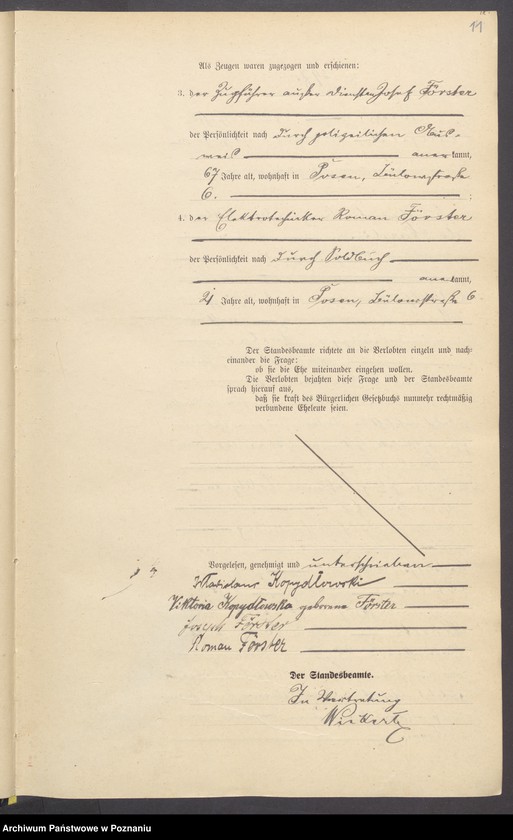 11
Als Zeugen waren zugezogen und erschienen:
3. der Zugführer außer Diensten Josef Förster
der Persönlichkeit nach durch polizeilichen Aus-
weis anerkannt,
67 Jahre alt, wohnhaft in Posen, Bülowstraße
6.
4. der Elektrotechniker Roman Förster
der Persönlichkeit nach durch Soldbuch
anerkannt,
Jahre alt, wohnhaft in Posen, Bülowstraße 6
Der Standesbeamte richtete an die Verlobten einzeln und nach-
einander die Frage:
ob sie die Ehe miteinander eingehen wollen.
Die Verlobten bejahten diese Frage und der Standesbeamte
sprach hierauf aus,
daß sie kraft des Bürgerlichen Gesetzbuchs nunmehr rechtmäßig
verbundene Eheleute seien.
Vorgelesen, genehmigt und unterschrieben
Wladislaus Kopydłowski
Viktoria Kopydłowska geborene Förster
Joseph Förster
Roman Förster
Der Standesbeamte.
In Vertretung
Archiwum Państwowe w Poznaniu